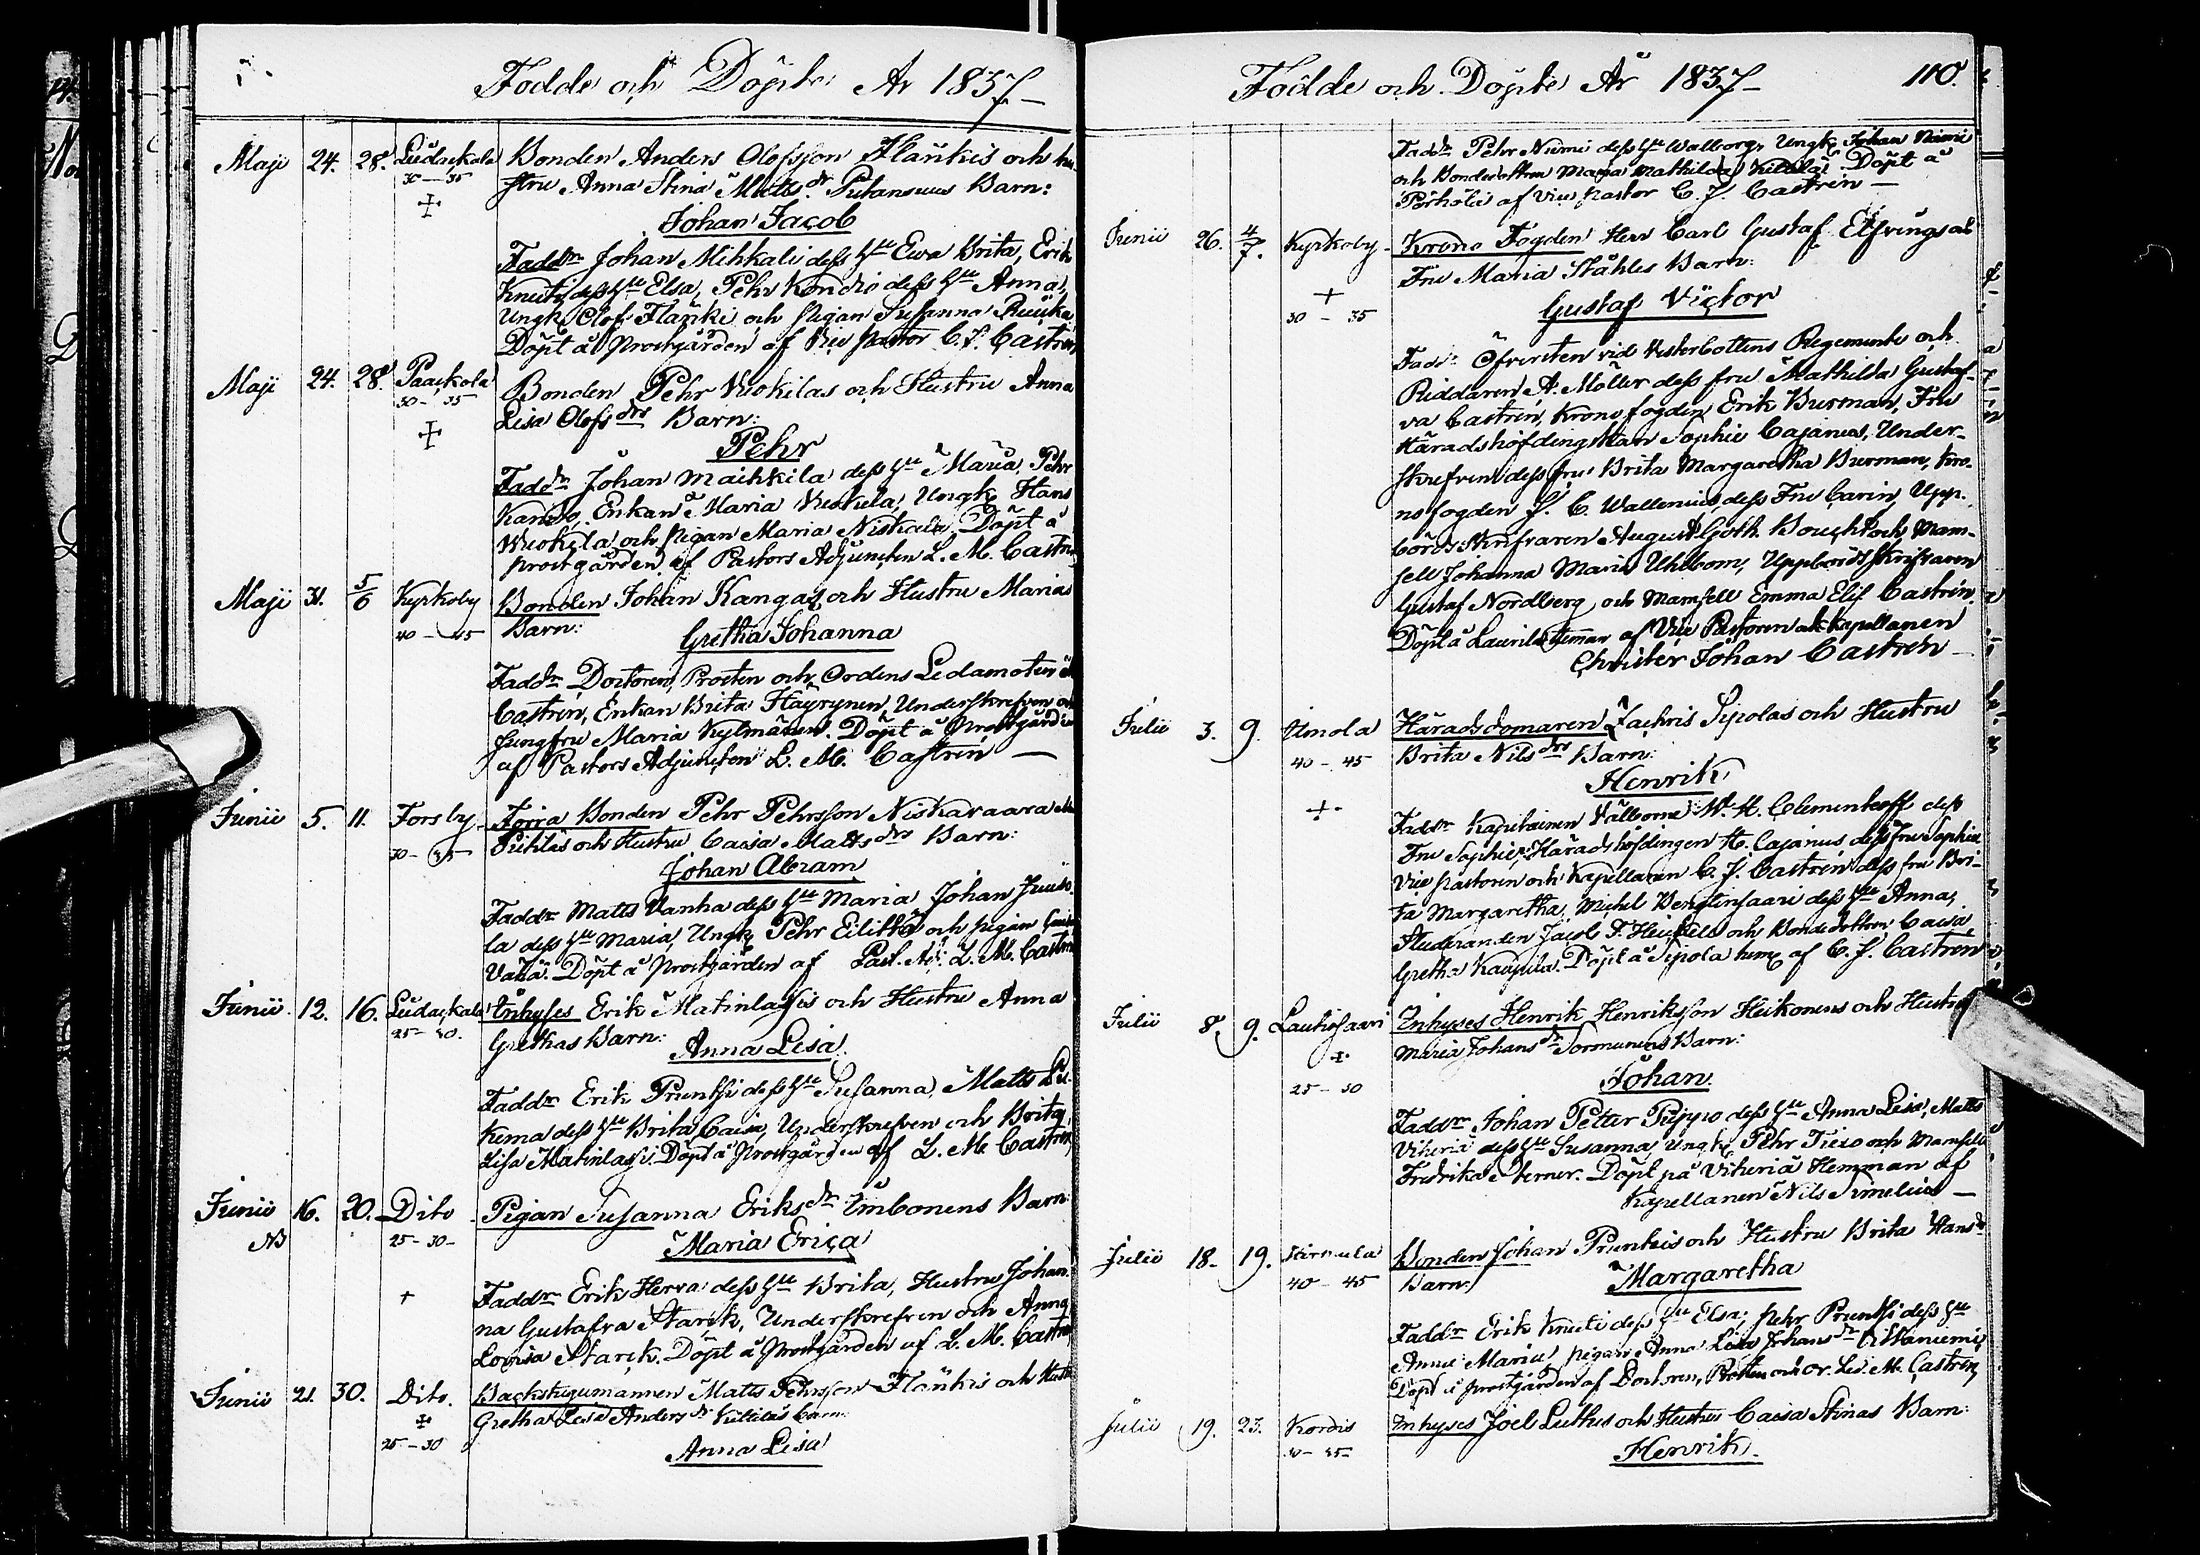 Födde och Döpte År 1837
Maji 24. 28. Ludackala Bonden Anders Olofsson Flankis och hu-
30-35 stru Anna Stina Matts dr Putansuus Barn:
Johan Jacob
Faddr Johan Mihkali dess Hu Ewa Brita, Erik
Knuti dess Hu Elsa, Pehr Kondio dess Hu Anna,
Ungk Olof Flanki och Pigan Susanna
Döpt å Prostgården af Vice Pastor C. J. Castrén
Maji 24. 28. Paackola Bonden Pehr Wiokilas och Hustru Anna
30-35 Lisa Olofs drs Barn:
Pehr
Faddr Johan Maihkila dess Hu Maria, Pehr
Kando, Enkan Maria Ungk Hans
Wiokila och Pigan Maria Niskala Döpt å
Prostgården af Pastors Adjuncten L. M. Castrén
Maji 31. 5/6 Kyrkoby Bonden Johan Kangas och Hustru Marias
40-45 Barn: Gretha Johanna
Faddr Doctoren, Prosten och Ordens Ledamoten
Castrén, Enkan Brita Häyrynen, Underskrefven och
Jungfru Maria Kylmänen. Döpt å Prostgården
af Pastors Adjuncten L. M. Castrén
Junii 5. 11. Forsby Förra Bonden Pehr Pehrsson Niskavaara
30-35 och Hustru Caisa Matts drs Barn:
Johan Abram
Faddr Matts Vanha dess Hu Maria, Johan Juuso-
la dess Hu Maria, Ungk Pehr Eilittä och pigan
Döpt å Prostgården af Past. Adj. L. M. Castrén
Junii 12. 16. Ludackala Inhyses Erik Matinlassis och Hustru Anna
25-30. Grethas Barn: Anna Lisa
Faddr Erik Pruntsi dess Hu Susanna, Matts
dess Hu Brita Caisa, Underskrefven och Brita
Lisa Matinlassi. Döpt å Prostgården af L. M. Castrén
Junii 16. 20. Dito Pigan Susanna Eriks dr Imbonens Barn:
NB 25-30 Maria Erica
Faddr Erik Herva dess Hu Brita, Hustru Johan-
na Gustafva Starck, Underskrefven och Anna
Lovisa Starck. Döpt å Prostgården af L. M. Castrén
Junii 21. 30. Dito. Backstugumannen Matts Pehrsson Flankis och Hustr
Gretha Lisa Anders dr Barn:
25-30 Anna Lisa
Födde och Döpte År 1837 110.
Faddr Pehr Niemi dess Hu Walborg, Ungk Johan Niemi
och Bondedottren Maria Mathilda Döpt å
Pörhölä af Vice Pastor C. J. Castrén
Junii 26. 4/7. Kyrkoby Krono Fogden Herr Carl Gustaf Elfvings och
Fru Maria Ståhles Barn:
30-35 Gustaf Victor
Faddr Öfversten vid Vesterbottens Regemente och
Riddaren A. Möller dess fru Mathilda Gustaf-
va Castrén, Kronofogden Erik Burman, Fru
Häradshöfdingskan Sophie Cajanus, Under-
skrefven dess fru Brita Margaretha Burman, Kro-
nofogden J. C. Wallenius dess Fru Carin, Upp-
börds Skrifvaren August Goth. Boucht och Mam-
sell Johanna Maria Uhlbom, Uppbördsskrifvaren
Gustaf Nordberg och Mamsell Emma Elis Castrén
Döpt å Laurila Hemman af Vice Pastoren och Kapellanen
Christer Johan Castrén
Julii 3. 9. Limola Häradsdomaren Zachris Sipolas och Hustru
40-45 Brita Nils drs Barn:
Henrik
Faddr Kapitainen Välborne W. H. Clementeoff dess
Fru Sophie, Häradshöfdingen H. Cajanus dess Fru Sophie
Vice Pastoren och Kapellanen C. J. Castrén dess fru Bri-
ta Margaretha, Michel Wengtinsaari dess Hu Anna,
Studeranden Jacob F. och Bondedottren Caisa
Gretha Döpt å Sipola hem af C. J. Castrén
Julii 8. 9. Lautiosaari Inhyses Henrik Henriksson Heikonens och Hustru
Maria Johans dr Tormunens Barn:
25-30 Johan
Faddr Johan Petter Puppio dess Hu Anna Lisa, Matts
Viheriä dess Hu Susanna, Ungk Pehr och Mamsell
Fredrika Perner. Döpt på Viheriä Hemman af
Kapellanen Nils Simelius
Julii 18. 19. Bonden Johan Pruntsis och Hustru Brita Hans dr
40-45 Barn: Margaretha
Faddr Erik Knuti dess Hu Elsa, Pehr Pruntsi dess Hu
Anna Maria, pigan Anna Lisa Johans dr
Döpt å Prostgården af Doctoren, Prosten och Or. Led. M. Castrén
Julii 19. 23. Inhyses Joel Luttus och Hustru Caisa Stinas Barn:
Henrik